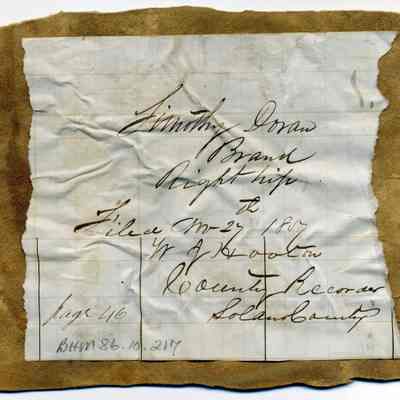 Timothy Doran
Brand
Right hip
th
Filed Nov 27 18
W J Hooton
County Recorder
Solano County
Page 46
BHM 86.10.217